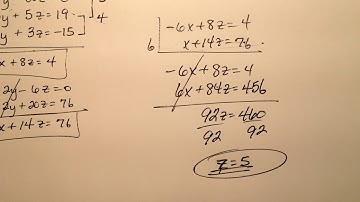 y + 5z = 19
y + 3z = -15
4
x + 8z = 4
2y - 6z = 0
2y + 20z = 76
x + 14z = 76
-6x + 8z = 4
6 x + 14z = 76
-6x + 8z = 4
6x + 84z = 456
92z = 460
92 92
z = 5